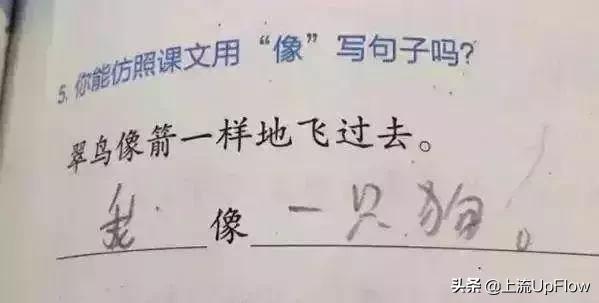 5. 你能仿照课文用“像”写句子吗?
翠鸟像箭一样地飞过去。
我像一只狗。
头条 @上流UpFlow